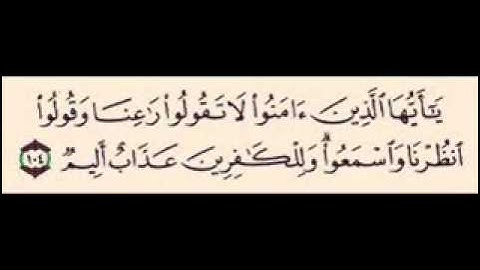 يَـٰٓأَيُّهَا ٱلَّذِينَ ءَامَنُوا۟ لَا تَقُولُوا۟ رَٰعِنَا وَقُولُوا۟
ٱنظُرْنَا وَٱسْمَعُوا۟ ۗ وَلِلْكَـٰفِرِينَ عَذَابٌ أَلِيمٌ ١٠٤